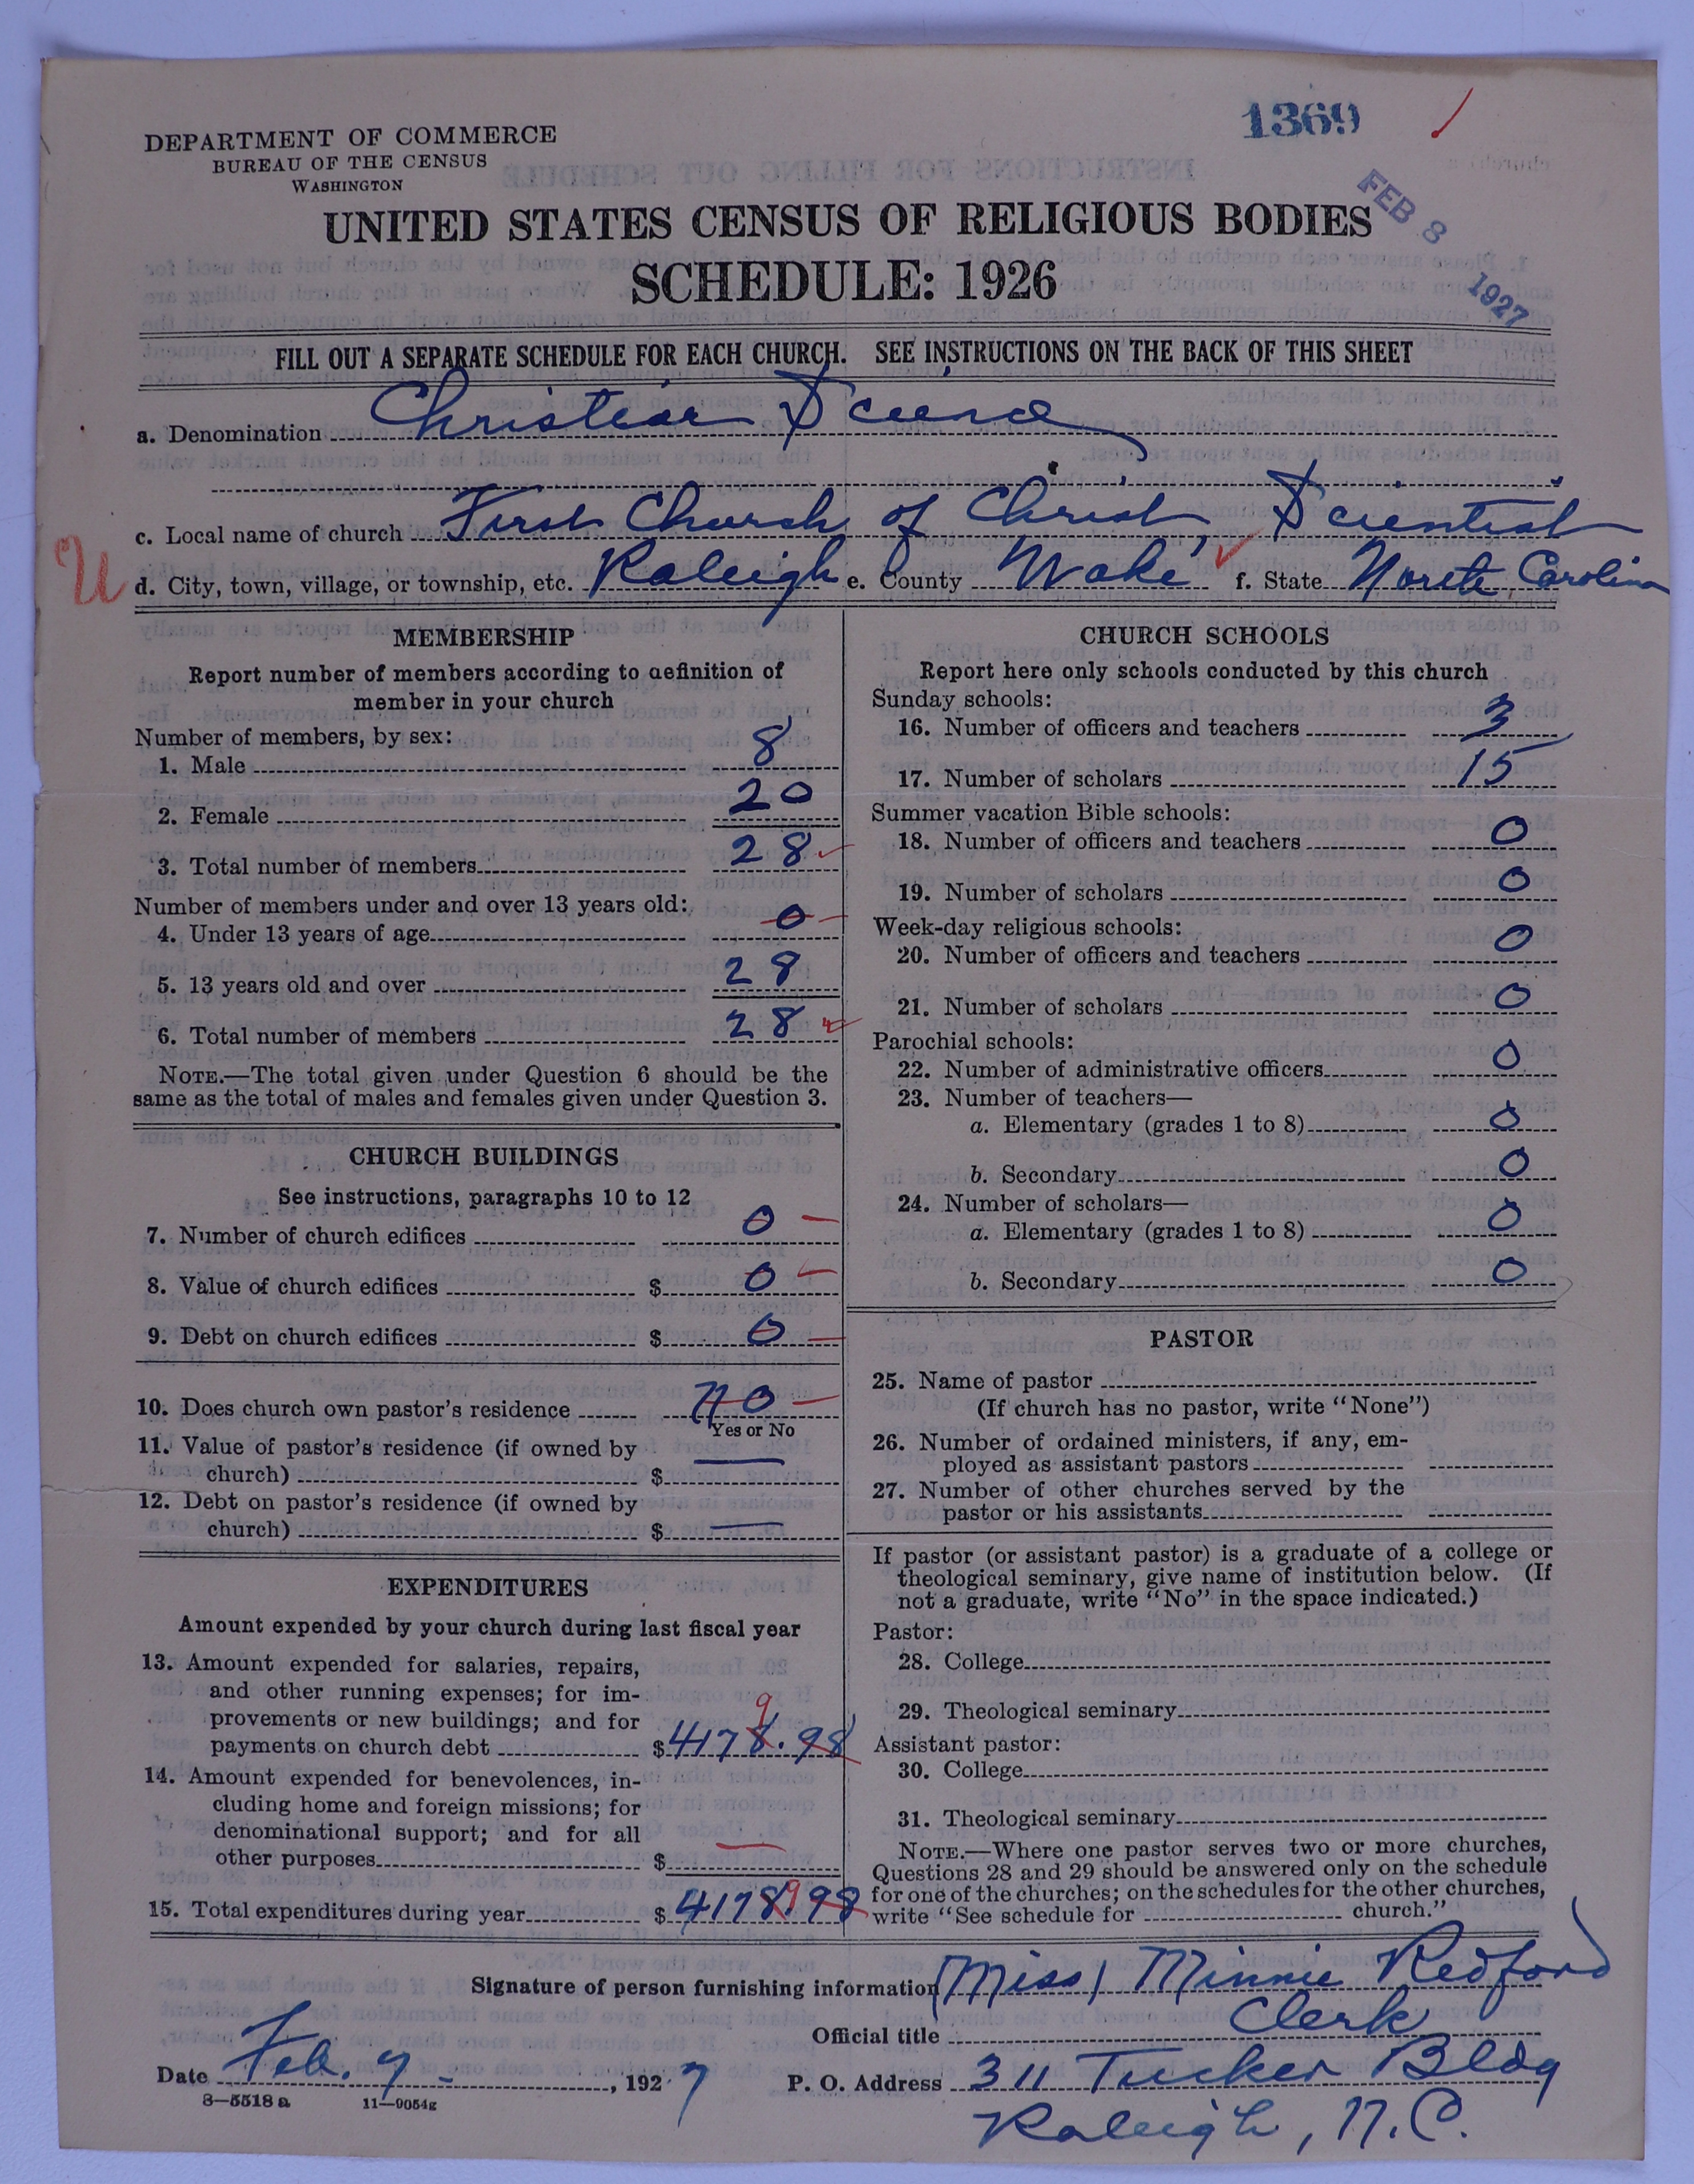 1369 /
DEPARTMENT OF COMMERCE
BUREAU OF THE CENSUS
WASHINGTON
FEB 8 1927
UNITED STATES CENSUS OF RELIGIOUS BODIES
SCHEDULE: 1926
FILL OUT A SEPARATE SCHEDULE FOR EACH CHURCH. SEE INSTRUCTIONS ON THE BACK OF THIS SHEET
a. Denomination Christian Science
c. Local name of church First Church of Christ, Scientist
U d. City, town, village, or township, etc. Raleigh e. County Wake f. State North Carolina
MEMBERSHIP
Report number of members according to definition of
member in your church
Number of members, by sex:
1. Male 8
2. Female 20
3. Total number of members 28
Number of members under and over 13 years old:
4. Under 13 years of age 0
5. 13 years old and over 28
6. Total number of members 28
NOTE.—The total given under Question 6 should be the
same as the total of males and females given under Question 3.
CHURCH BUILDINGS
See instructions, paragraphs 10 to 12
7. Number of church edifices 0
8. Value of church edifices $ 0
9. Debt on church edifices $ 0
10. Does church own pastor's residence no
Yes or No
11. Value of pastor's residence (if owned by
church) $ —
12. Debt on pastor's residence (if owned by
church) $ —
EXPENDITURES
Amount expended by your church during last fiscal year
13. Amount expended for salaries, repairs,
and other running expenses; for im-
provements or new buildings; and for 9
payments on church debt $ 4178.98
14. Amount expended for benevolences, in-
cluding home and foreign missions; for
denominational support; and for all
other purposes $ —
15. Total expenditures during year $ 4178.98 9
CHURCH SCHOOLS
Report here only schools conducted by this church
Sunday schools:
16. Number of officers and teachers 3
17. Number of scholars 15
Summer vacation Bible schools:
18. Number of officers and teachers 0
19. Number of scholars 0
Week-day religious schools:
20. Number of officers and teachers 0
21. Number of scholars 0
Parochial schools:
22. Number of administrative officers 0
23. Number of teachers—
a. Elementary (grades 1 to 8) 0
b. Secondary 0
24. Number of scholars—
a. Elementary (grades 1 to 8) 0
b. Secondary 0
PASTOR
25. Name of pastor
(If church has no pastor, write "None")
26. Number of ordained ministers, if any, em-
ployed as assistant pastors
27. Number of other churches served by the
pastor or his assistants
If pastor (or assistant pastor) is a graduate of a college or
theological seminary, give name of institution below. (If
not a graduate, write "No" in the space indicated.)
Pastor:
28. College
29. Theological seminary
Assistant pastor:
30. College
31. Theological seminary
NOTE.—Where one pastor serves two or more churches,
Questions 28 and 29 should be answered only on the schedule
for one of the churches; on the schedules for the other churches,
write "See schedule for church."
Signature of person furnishing information (Miss) Minnie Redford
Official title Clerk
Date Feb. 7 - , 1927 P. O. Address 311 Tucker Bldg
8—5518 a 11—9054g
Raleigh, N.C.